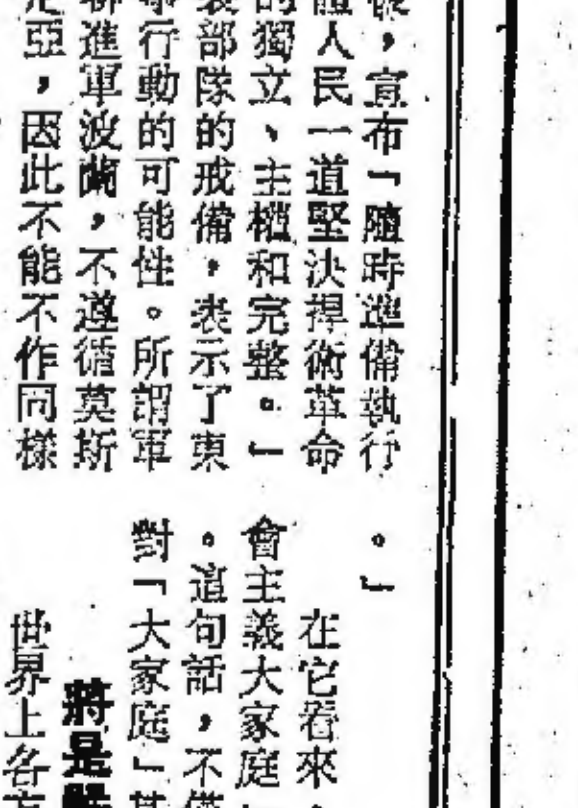 宣布「隨時準備執行
體人民一道堅決捍衛革命
的獨立、主權和完整。」
部隊的戒備，表示了東
行動的可能性。所謂軍
聯進軍波蘭，不遵循莫斯
亞，因此不能不作同樣
。」
在它看來
會主義大家庭
。這句話，不僅
對「大家庭」其
將是嚴
世界上各方